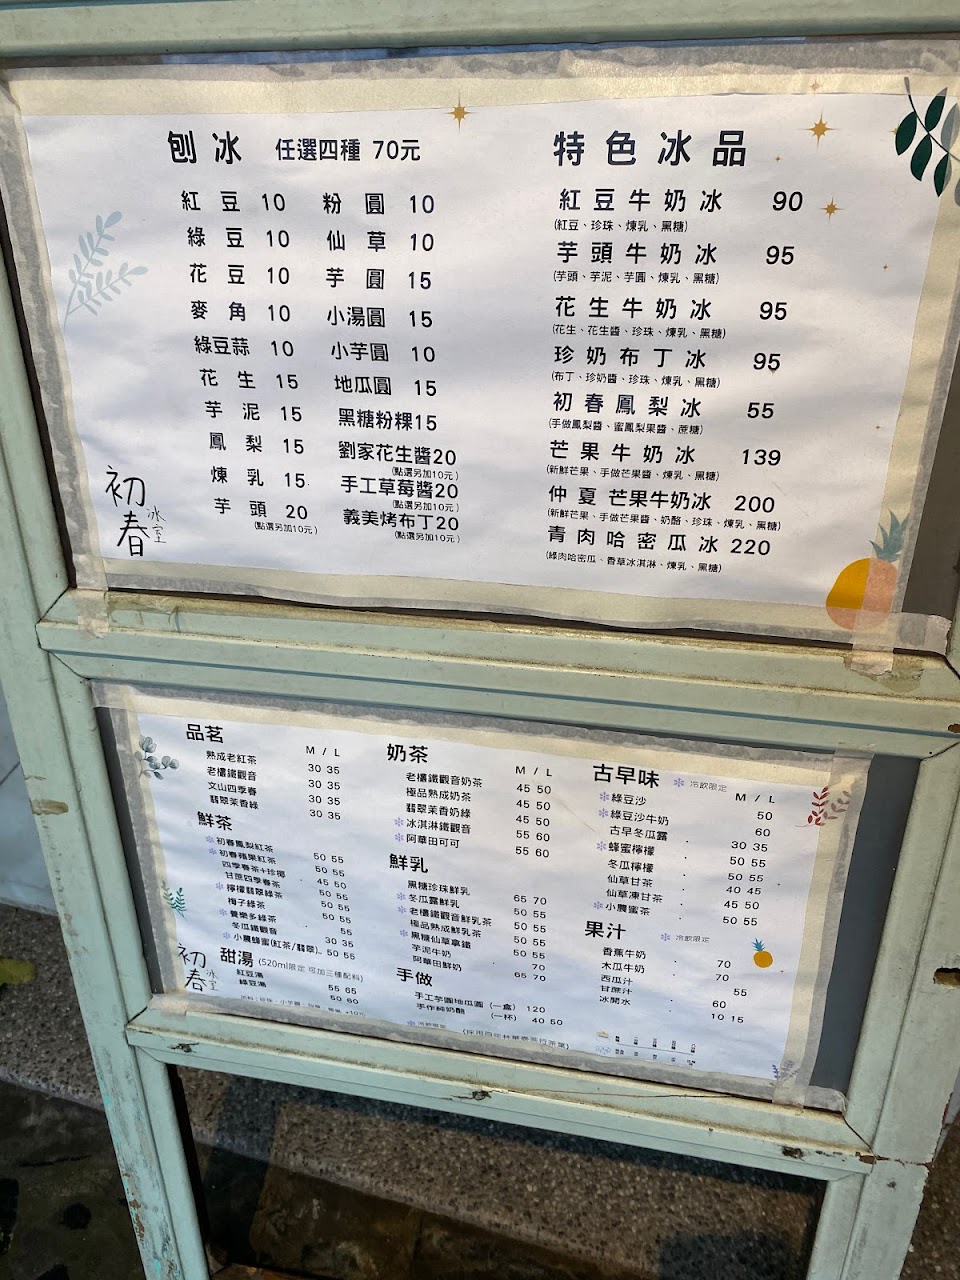 刨冰 任選四種 70元
紅豆 10 粉圓 10
綠豆 10 仙草 10
花豆 10 芋圓 15
麥角 10 小湯圓 15
綠豆蒜 10 小芋圓 10
花生 15 地瓜圓 15
芋泥 15 黑糖粉粿15
鳳梨 15 劉家花生醬20
(點選另加10元)
煉乳 15 手工草莓醬20
(點選另加10元)
芋頭 20 義美烤布丁20
(點選另加10元) (點選另加10元)
初春冰室
特色冰品
紅豆牛奶冰 90
(紅豆、珍珠、煉乳、黑糖)
芋頭牛奶冰 95
(芋頭、芋泥、芋圓、煉乳、黑糖)
花生牛奶冰 95
(花生、花生醬、珍珠、煉乳、黑糖)
珍奶布丁冰 95
(布丁、珍奶醬、珍珠、煉乳、黑糖)
初春鳳梨冰 55
(手做鳳梨醬、蜜鳳梨果醬、蔗糖)
芒果牛奶冰 139
(新鮮芒果、手做芒果醬、煉乳、黑糖)
仲夏芒果牛奶冰 200
(新鮮芒果、手做芒果醬、奶酪、珍珠、煉乳、黑糖)
青肉哈密瓜冰 220
(綠肉哈密瓜、香草冰淇淋、煉乳、黑糖)
品茗 M / L
熟成老紅茶 30 35
老欉鐵觀音 30 35
文山四季春 30 35
翡翠茉香綠 30 35
鮮茶
初春鳳梨紅茶 50 55
初春蘋果紅茶 50 55
四季春茶+珍椰 45 50
甘蔗四季春茶 50 55
檸檬翡翠綠茶 50 55
梅子綠茶 50 55
養樂多綠茶 50 55
冬瓜鐵觀音 30 35
小農蜂蜜(紅茶/翡翠) 50 55
甜湯 (520ml限定 可加三種配料)
紅豆湯 55 65
綠豆湯 50 60
初春冰室
奶茶 M / L
老欉鐵觀音奶茶 45 50
極品熟成奶茶 45 50
翡翠茉香奶綠 45 50
冰淇淋鐵觀音 55 60
阿華田可可 55 60
鮮乳
黑糖珍珠鮮乳 65 70
冬瓜露鮮乳 50 55
老欉鐵觀音鮮乳茶 50 55
極品熟成鮮乳茶 50 55
黑糖仙草拿鐵 50 55
芋泥牛奶 70
阿華田鮮奶 65 70
手做
手工芋圓地瓜圓 (一盒) 120
手作純奶酪 (一杯) 40 50
冷飲限定
古早味 冷飲限定 M / L
綠豆沙 50
綠豆沙牛奶 60
古早冬瓜露 30 35
蜂蜜檸檬 50 55
冬瓜檸檬 50 55
仙草甘茶 40 45
仙草凍甘茶 45 50
小農蜜茶 50 55
果汁 冷飲限定
香蕉牛奶 70
木瓜牛奶 70
西瓜汁 55
甘蔗汁 60
冰開水 10 15